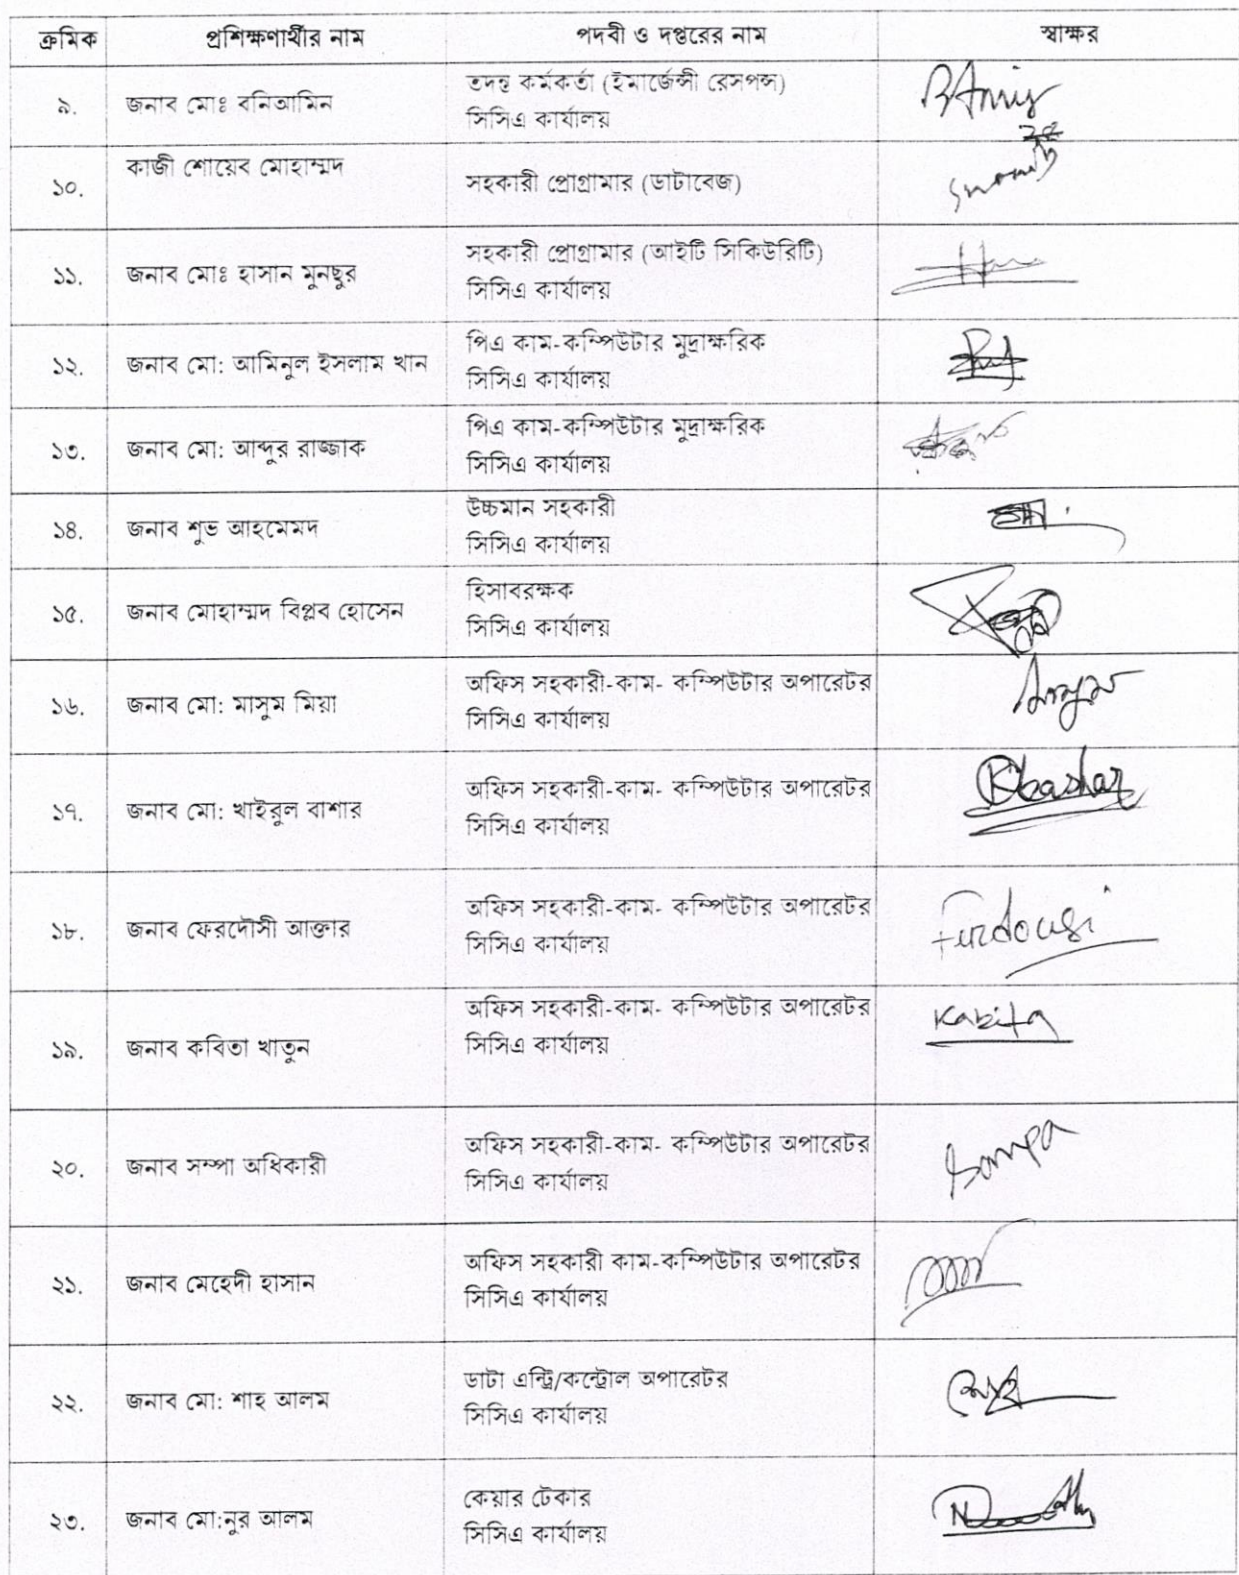 ক্রমিক প্রশিক্ষণার্থীর নাম পদবী ও দপ্তরের নাম স্বাক্ষর
৯. জনাব মোঃ বনিআমিন তদন্ত কর্মকর্তা (ইমার্জেন্সী রেসপন্স)
সিসিএ কার্যালয়
১০. কাজী শোয়েব মোহাম্মদ সহকারী প্রোগ্রামার (ডাটাবেজ)
১১. জনাব মোঃ হাসান মুনছুর সহকারী প্রোগ্রামার (আইটি সিকিউরিটি)
সিসিএ কার্যালয়
১২. জনাব মো: আমিনুল ইসলাম খান পিএ কাম-কম্পিউটার মুদ্রাক্ষরিক
সিসিএ কার্যালয়
১৩. জনাব মো: আব্দুর রাজ্জাক পিএ কাম-কম্পিউটার মুদ্রাক্ষরিক
সিসিএ কার্যালয়
১৪. জনাব শুভ আহমেমদ উচ্চমান সহকারী
সিসিএ কার্যালয়
১৫. জনাব মোহাম্মদ বিপ্লব হোসেন হিসাবরক্ষক
সিসিএ কার্যালয়
১৬. জনাব মো: মাসুম মিয়া অফিস সহকারী-কাম- কম্পিউটার অপারেটর
সিসিএ কার্যালয়
১৭. জনাব মো: খাইরুল বাশার অফিস সহকারী-কাম- কম্পিউটার অপারেটর Kbashar
সিসিএ কার্যালয়
১৮. জনাব ফেরদৌসী আক্তার অফিস সহকারী-কাম- কম্পিউটার অপারেটর Furdousi
সিসিএ কার্যালয়
১৯. জনাব কবিতা খাতুন অফিস সহকারী-কাম- কম্পিউটার অপারেটর Kabita
সিসিএ কার্যালয়
২০. জনাব সম্পা অধিকারী অফিস সহকারী-কাম- কম্পিউটার অপারেটর Sampa
সিসিএ কার্যালয়
২১. জনাব মেহেদী হাসান অফিস সহকারী কাম-কম্পিউটার অপারেটর
সিসিএ কার্যালয়
২২. জনাব মো: শাহ আলম ডাটা এন্ট্রি/কন্ট্রোল অপারেটর
সিসিএ কার্যালয়
২৩. জনাব মো:নুর আলম কেয়ার টেকার
সিসিএ কার্যালয়